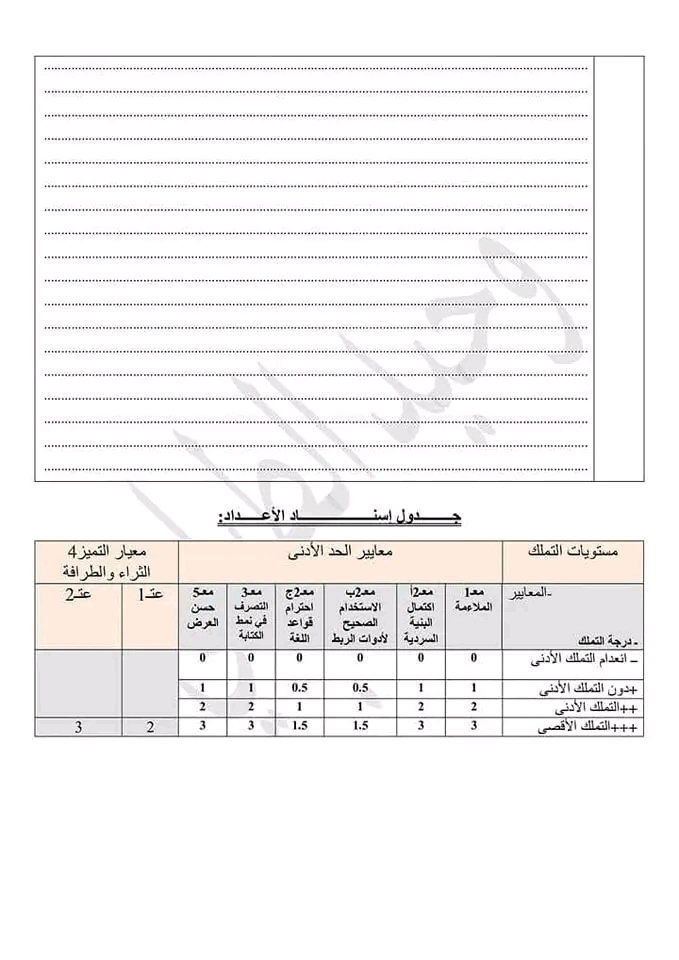 جـــــدول إسنـــــــــــــــاد الأعـــــداد:
مستويات التملك
معايير الحد الأدنى
معيار التميز4
الثراء والطرافة
-المعايير
- درجة التملك
معـ1
الملاءمة
معـ2أ
اكتمال
البنية
السردية
معـ2ب
الاستخدام
الصحيح
لأدوات الربط
معـ2ج
احترام
قواعد
اللغة
معـ3
التصرف
في نمط
الكتابة
معـ5
حسن
العرض
عتـ1
عتـ2
– انعدام التملك الأدنى 0 0 0 0 0 0
+دون التملك الأدنى 1 1 0.5 0.5 1 1
++التملك الأدنى 2 2 1 1 2 2
+++التملك الأقصى 3 3 1.5 1.5 3 3 2 3